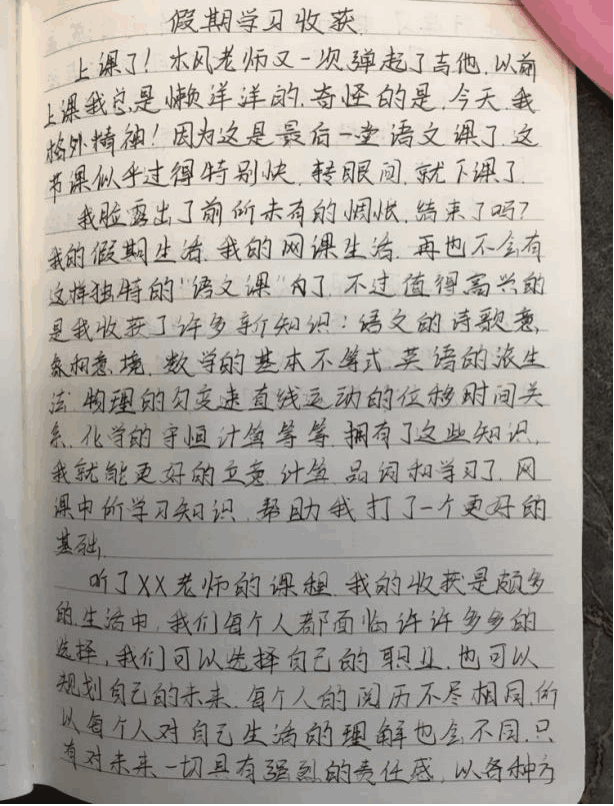 假期学习收获
上课了！木风老师又一次弹起了吉他，以前
上课我总是懒洋洋的，奇怪的是，今天，我
格外精神！因为这是最后一堂语文课了，这
节课似乎过得特别快，转眼间，就下课了。
我脸露出了前所未有的惆怅，结束了吗？
我的假期生活，我的网课生活，再也不会有
这样独特的"语文课"内了，不过值得高兴的
是我收获了许多新知识：语文的诗歌意
象和意境，数学的基本不等式，英语的派生
法，物理的匀变速直线运动的位移时间关
系，化学的守恒计算等等，拥有了这些知识，
我就能更好的立意，计算，品词和学习了，网
课中所学习知识，帮助我打了一个更好的
基础。
听了XX老师的课程，我的收获是颇多
的，生活中，我们每个人都面临许许多多的
选择，我们可以选择自己的职业，也可以
规划自己的未来，每个人的阅历不尽相同，所
以每个人对自己生活的理解也会不同，只
有对未来一切具有强烈的责任感，以各种方